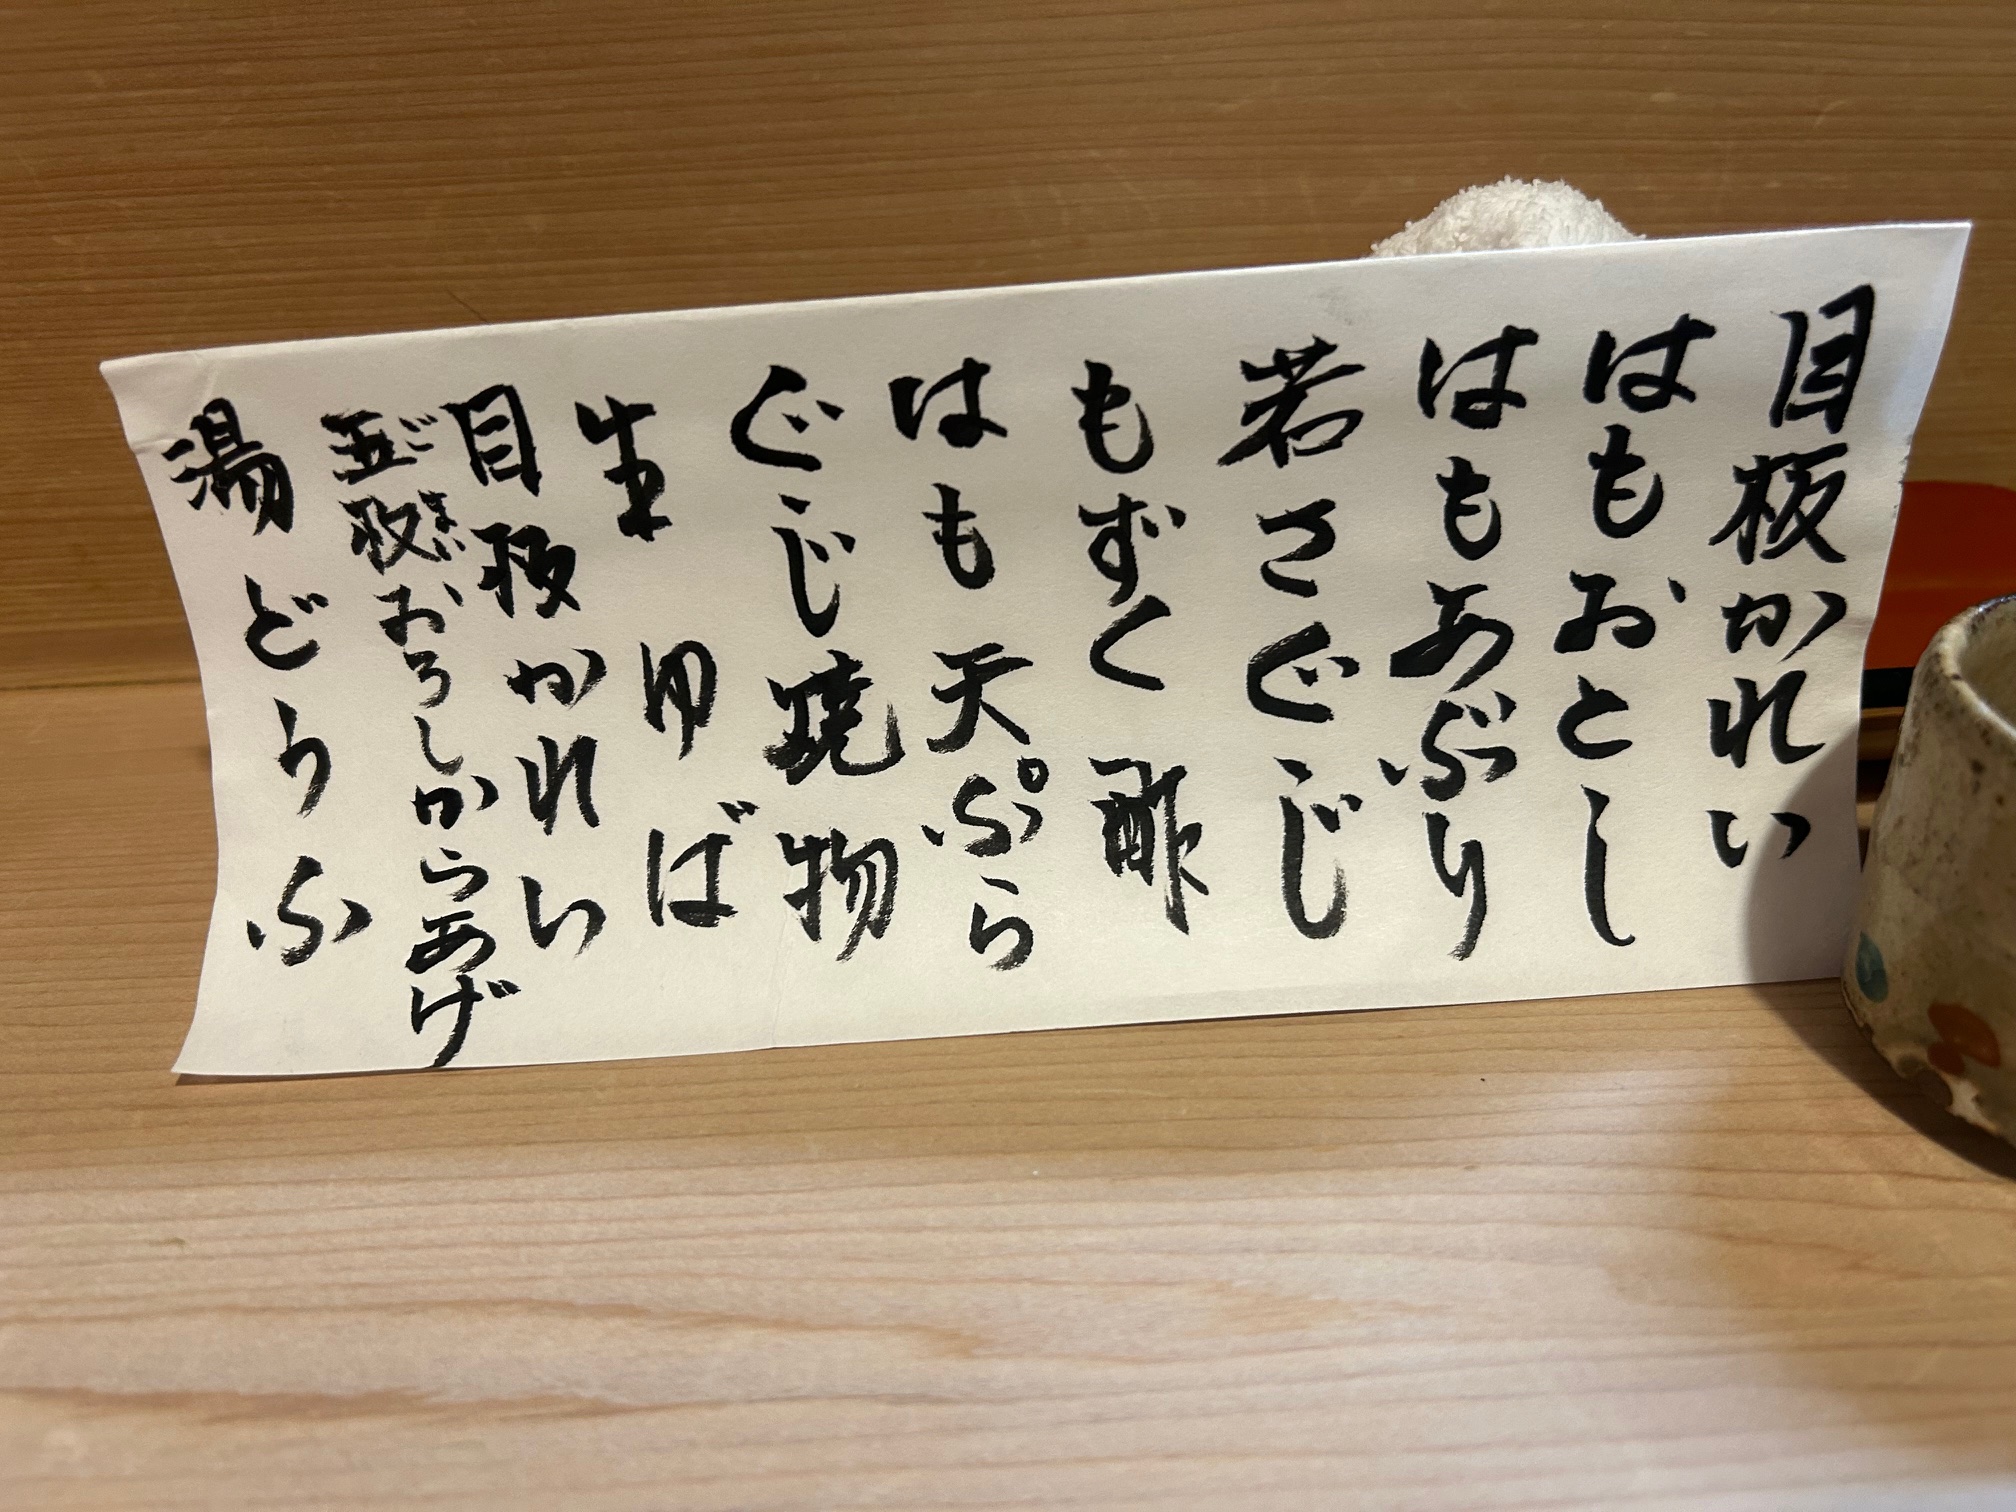 目板かれい
はもおとし
はもあぶり
若さぐじ
もずく酢
はも天ぷら
ぐじ焼物
生ゆば
目板かれい
五枚おろしからあげ
ごまい
湯どうふ